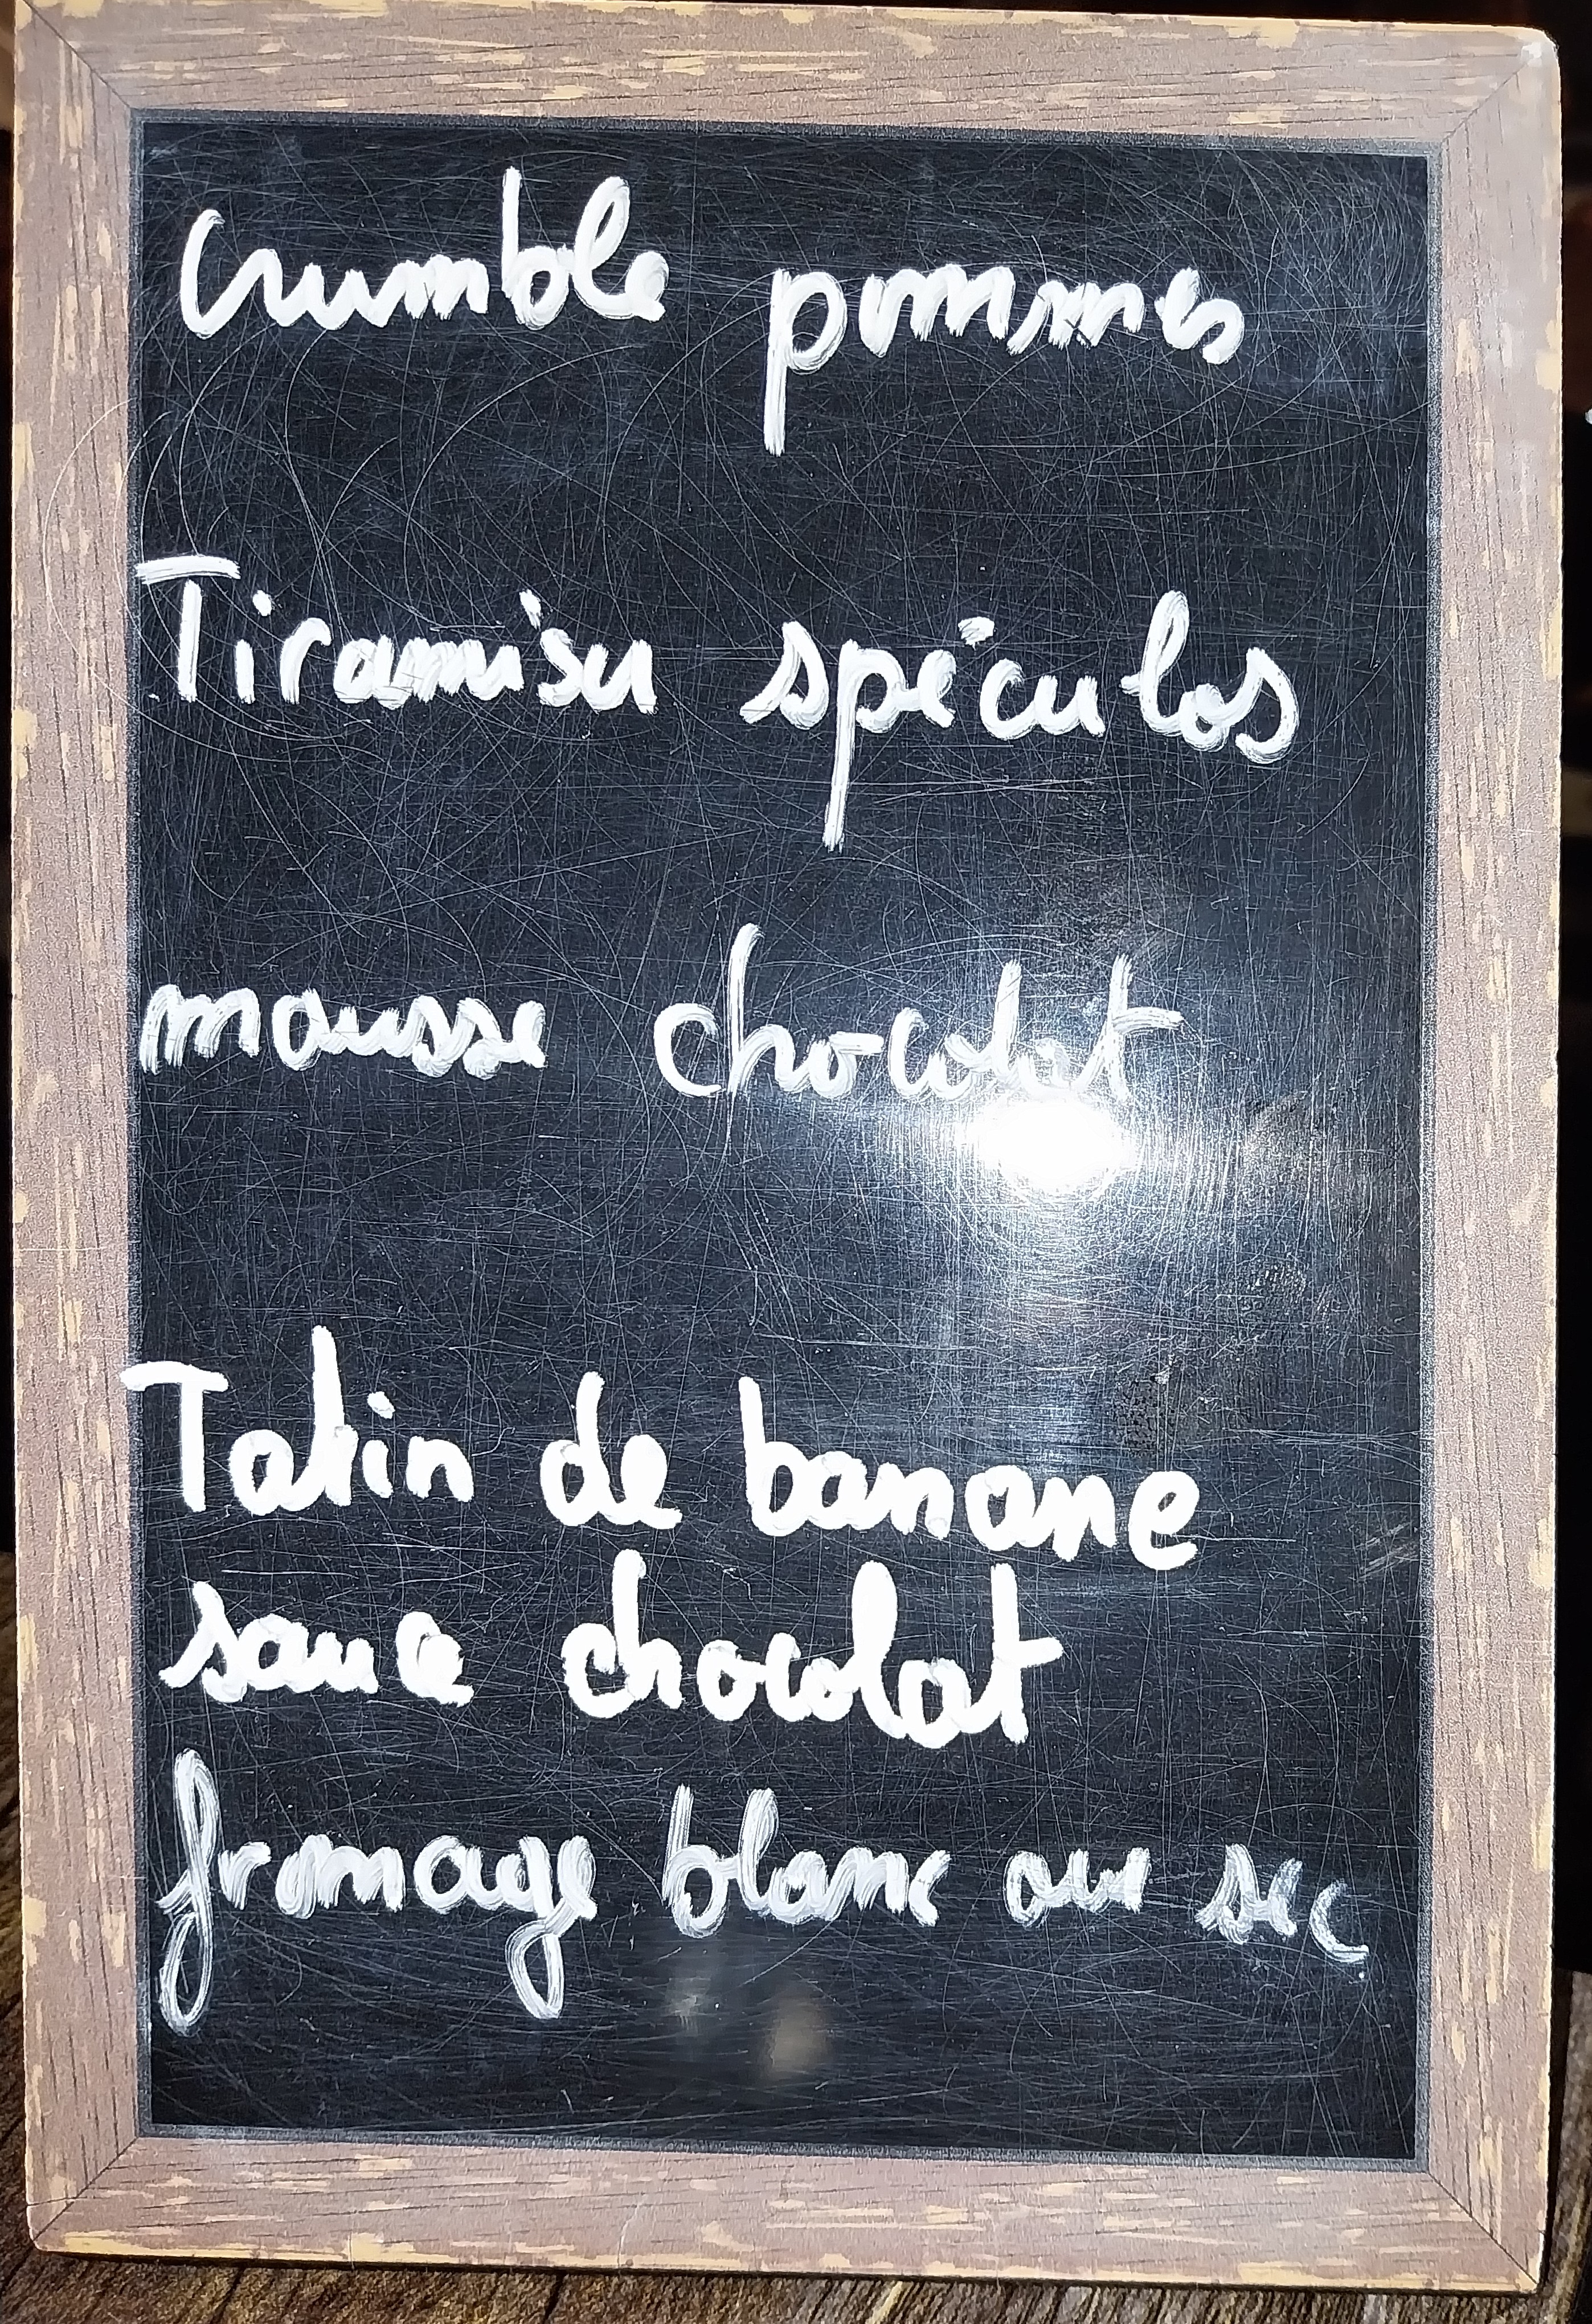 Crumble pommes
Tiramisu spéculos
mousse chocolat
Tatin de banane
sauce chocolat
fromage blanc ou sec